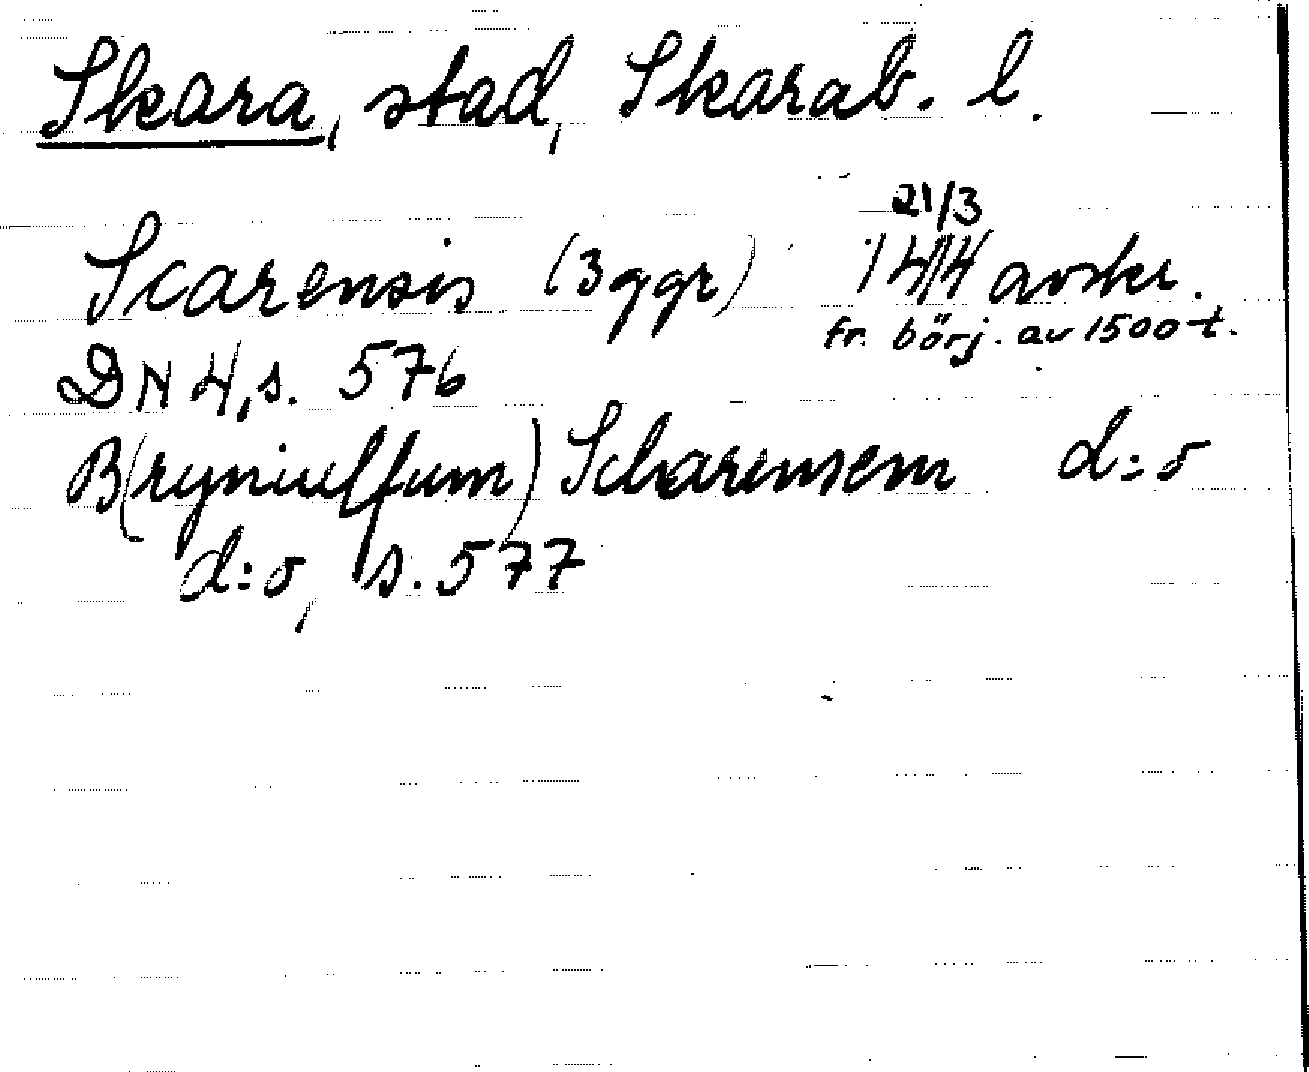 Skara, stad, Skarab. l.
21/3
Scarensis (3 ggr) 1414 avskr.
fr. börj. av 1500-t.
DN 4, s. 576
B(ryniulffum) Scharensem d:o
d:o, s. 577